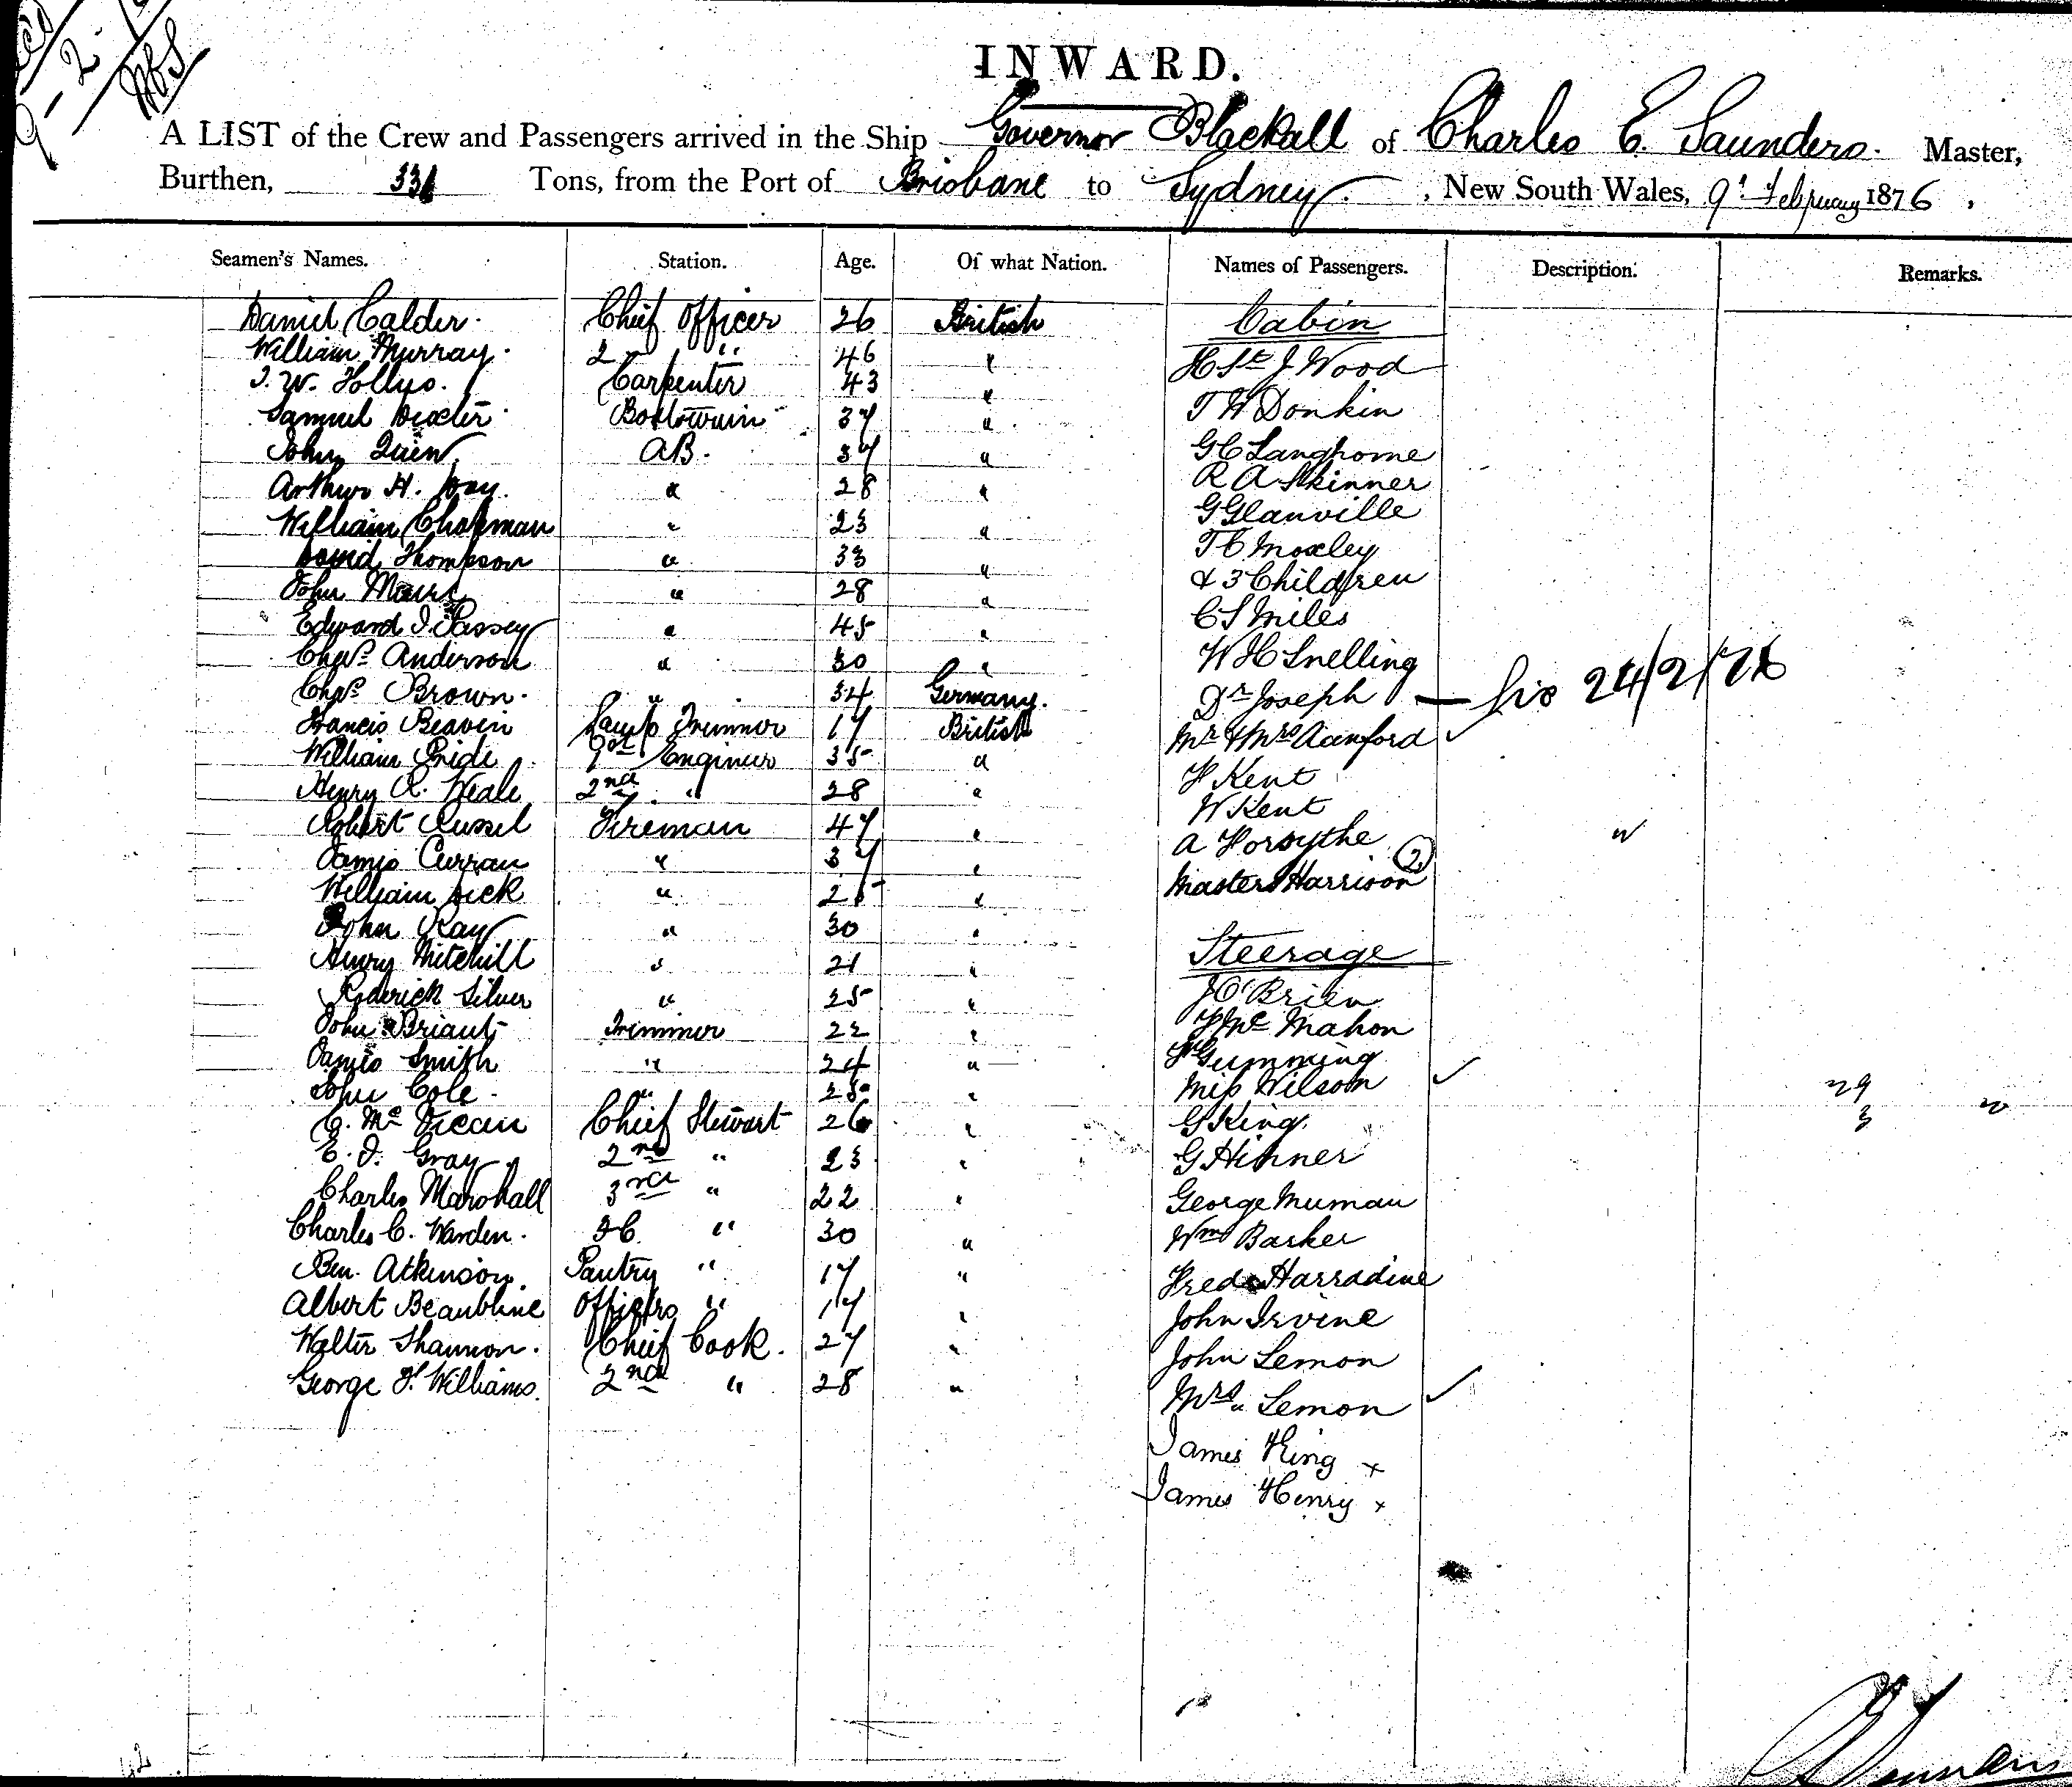 9-2-
INWARD.
A LIST of the Crew and Passengers arrived in the Ship Governor Blackall of Charles E. Saunders. Master,
Burthen, 336 Tons, from the Port of Brisbane to Sydney. , New South Wales, 9th February 1876,
Seamen's Names. Station. Age. Of what Nation. Names of Passengers. Description. Remarks.
Daniel Calder. Chief Officer 26 British Cabin
William Murray. 2 " 46 " H St J. Wood
J. W. Hollys. Carpenter 43 " T W Donkin
Samuel Dexter Boatswain 37 " G C Langhorne
John Quin. AB. 37 " R A Skinner
Arthur H. Hay. " 28 " G Glanville
William Chapman " 23 " T C Moxley
David Thompson " 33 " & 3 Children
John " 28 " C S Miles
Edward J. Passey " 45 " W H Snelling
Chas. Anderson " 30 " Dr Joseph — 24/2/76
Chas. Brown. " 34 Germany. Mr & Mrs
Francis Beavin Lamp Trimmer 17 British F Kent
William Pride 1st Engineer 35 " W Kent
Henry R. Neale 2nd " 28 " A Forsythe
Robert Russel Fireman 47 " Masters Harrison (2)
James Curran " 37 "
William Dick " 25 "
John Kay " 30 " Steerage
Henry Mitchell " 21 " J O'Brien
Roderick Silver " 25 " F Mc Mahon
John Briant Trimmer 22 " Gumming
James Smith " 24 " Miss Wilson
John Cole. " 25 " G King. 29
C. Mc Chief Stewart 26 " G Hinner 3
E. J. Gray 2nd " 23 " George Muman
Charles Marshall 3rd " 22 " Wm Barker
Charles C. Warden. F C. " 30 " Fred Harradine
Ben. Atkinson. Pantry " 17 " John Irvine
Albert Beaubline Officers " 17 " John Lemon
Walter Shannon. Chief Cook. 27 " Mrs. Lemon
George F. Williams. 2nd " 28 " James King x
James Henry x